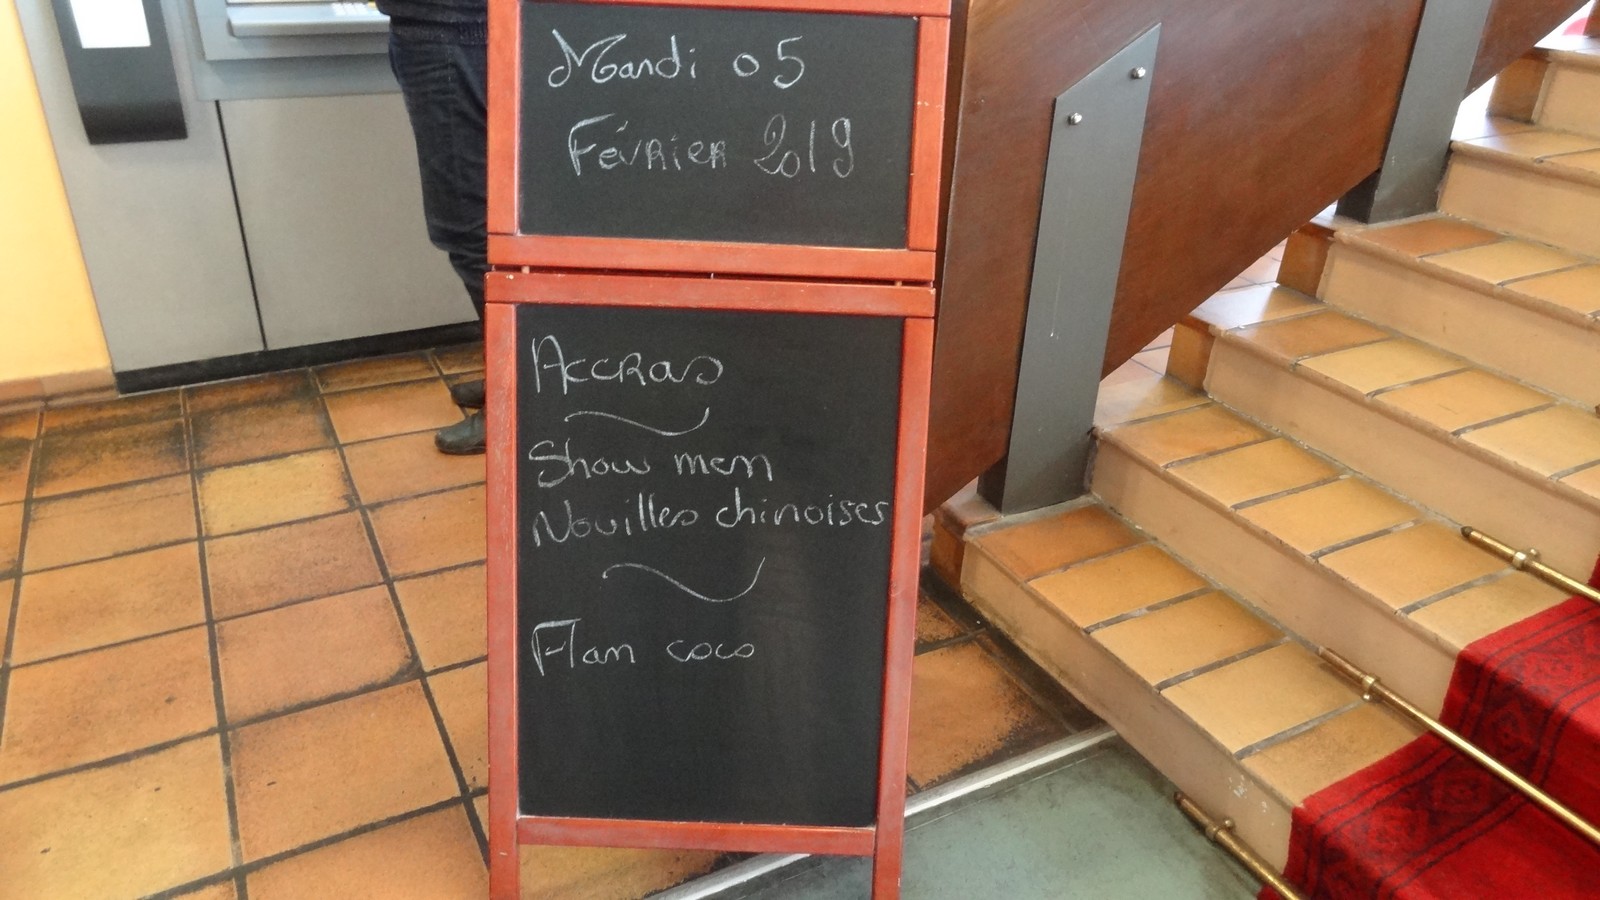 Mardi 05
Février 2019
Accras
Show men
Nouilles chinoises
Flan coco